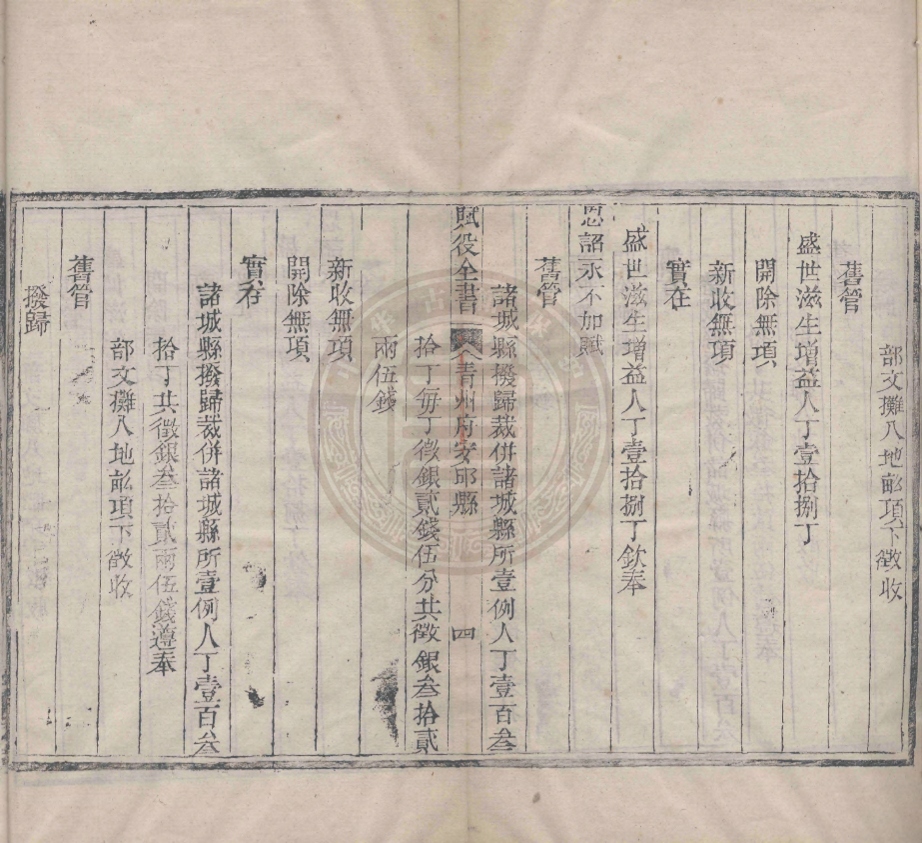 部文攤入地畝項下徵收
舊管
盛世滋生增益人丁壹拾捌丁
開除無項
新收無項
實在
盛世滋生增益人丁壹拾捌丁欽奉
恩詔永不加賦
舊管
諸城縣撥歸裁併諸城縣所壹例人丁壹百叁
賦役全書 青州府安邱縣 四
拾丁每丁徵銀貳錢伍分共徵銀叁拾貳
兩伍錢
新收無項
開除無項
實在
諸城縣撥歸裁併諸城縣所壹例人丁壹百叁
拾丁共徵銀叁拾貳兩伍錢遵奉
部文攤入地畝項下徵收
舊管
撥歸